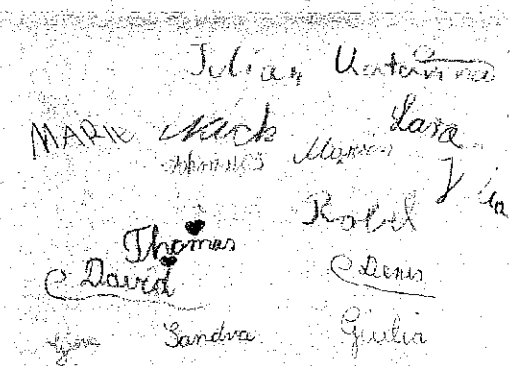 Julian Katarina
MARIE Nack Lara
Hannes Marien
Robel
Thomas
David Denis
Sandra Giulia